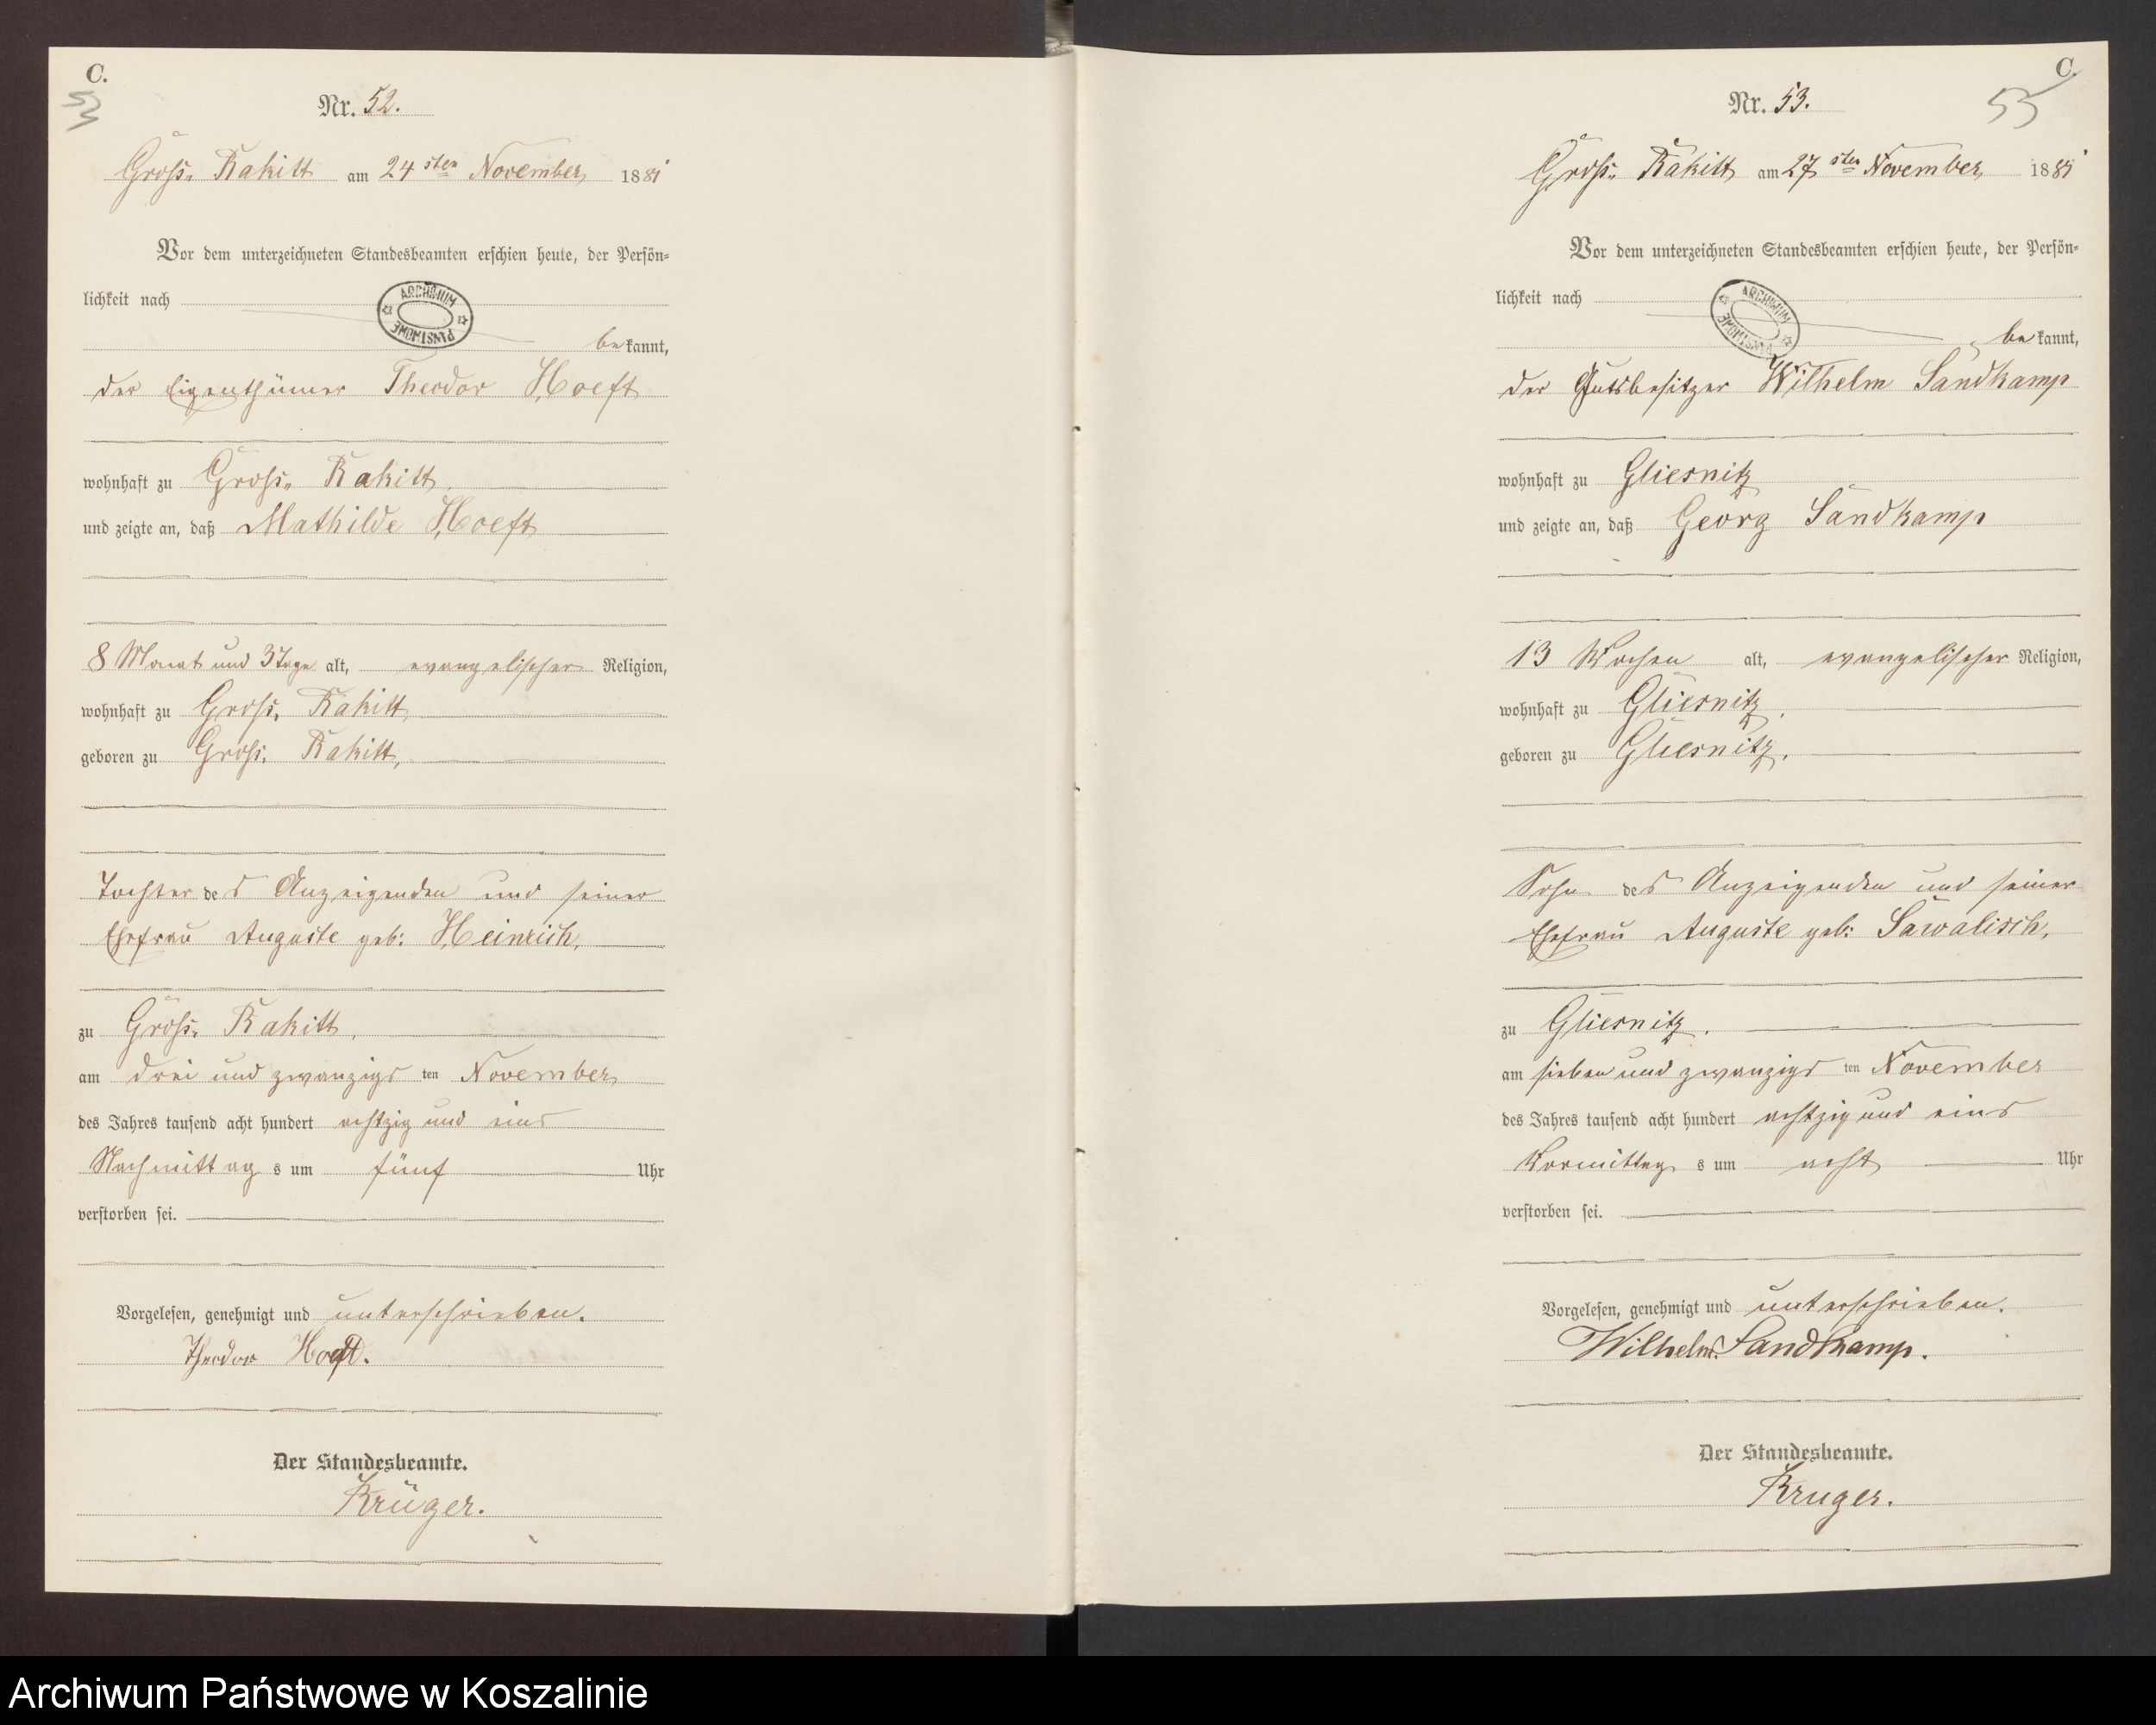 C.
Nr. 52.
Gross- Rakitt am 24 sten November 1881
Vor dem unterzeichneten Standesbeamten erschien heute, der Persön-
lichkeit nach
ARCHIWUM PAŃSTWOWE
bekannt,
der Eigenthümer Theodor Hoeft
wohnhaft zu Gross- Rakitt,
und zeigte an, daß Mathilde Hoeft
8 Monat und 3 Tage alt, evangelischer Religion,
wohnhaft zu Gross- Rakitt,
geboren zu Gross- Rakitt,
Tochter des Anzeigenden und seiner
Ehefrau Auguste geb: Heinrich,
zu Gross- Rakitt,
am drei und zwanzigsten November
des Jahres tausend acht hundert achtzig und eins
Nachmittags um fünf Uhr
verstorben sei.
Vorgelesen, genehmigt und unterschrieben.
Theodor Hoeft.
Der Standesbeamte.
Krüger.
C.
53
Nr. 53.
Gross- Rakitt am 27 sten November 1881
Vor dem unterzeichneten Standesbeamten erschien heute, der Persön-
lichkeit nach
ARCHIWUM PAŃSTWOWE
bekannt,
der Gutsbesitzer Wilhelm Sandkamp
wohnhaft zu Gliesnitz
und zeigte an, daß Georg Sandkamp
13 Wochen alt, evangelischer Religion,
wohnhaft zu Gliesnitz,
geboren zu Gliesnitz,
Sohn des Anzeigenden und seiner
Ehefrau Auguste geb: Sawalisch,
zu Gliesnitz,
am sieben und zwanzigsten November
des Jahres tausend acht hundert achtzig und eins
Vormittags um acht Uhr
verstorben sei.
Vorgelesen, genehmigt und unterschrieben.
Wilhelm Sandkamp.
Der Standesbeamte.
Krüger.
Archiwum Państwowe w Koszalinie